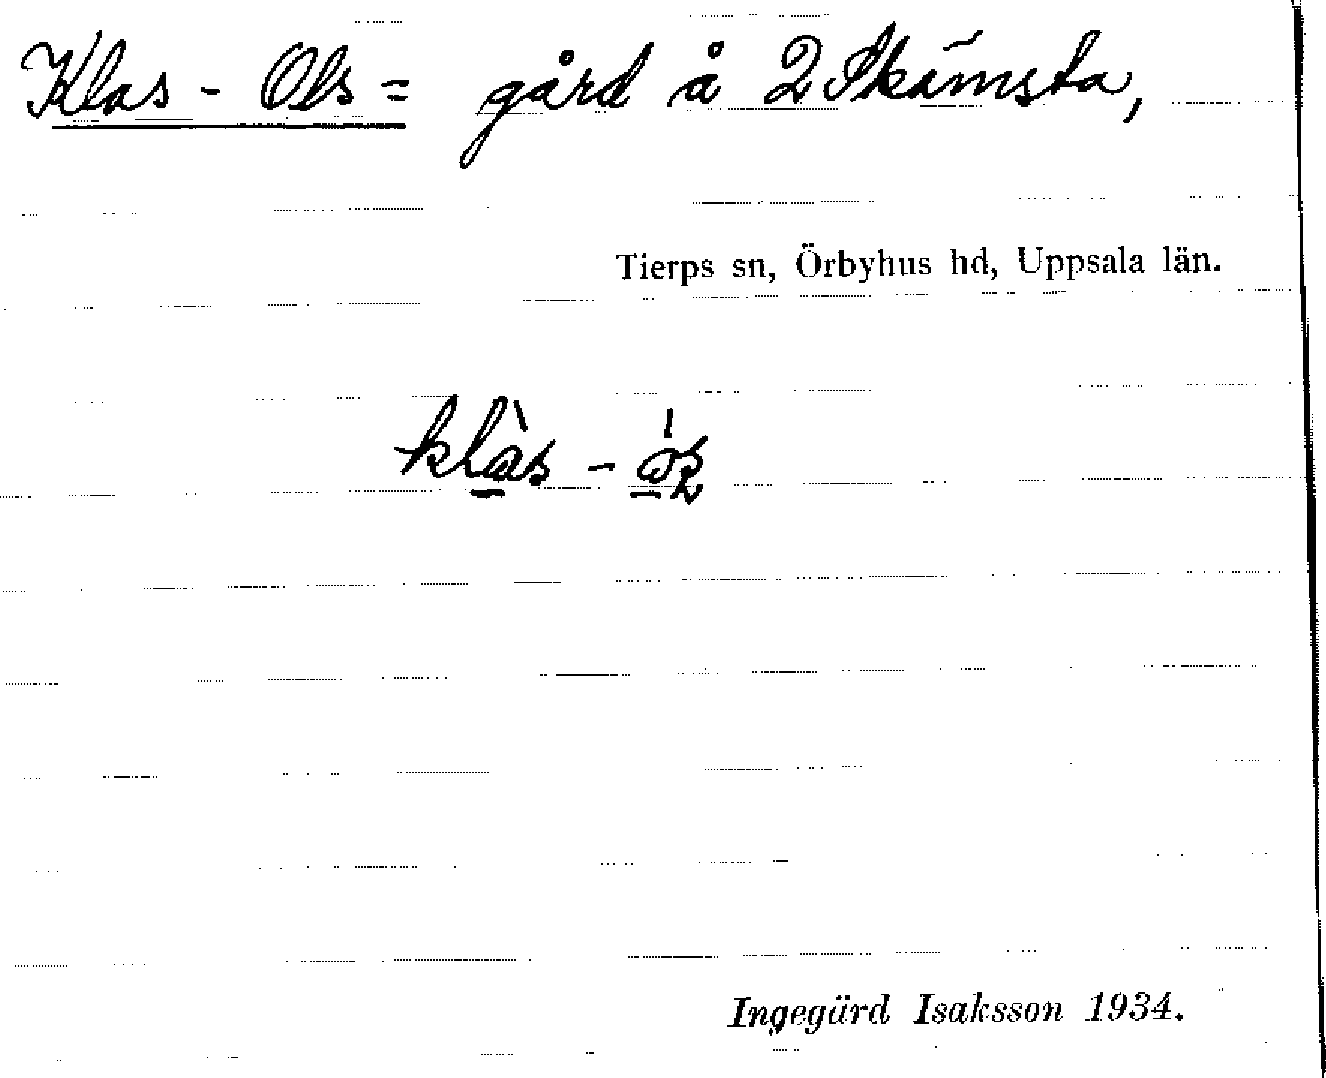 Klas - Ols = gård å 2 Skämsta,
Tierps sn, Örbyhus hd, Uppsala län.
Ingegärd Isaksson 1934.